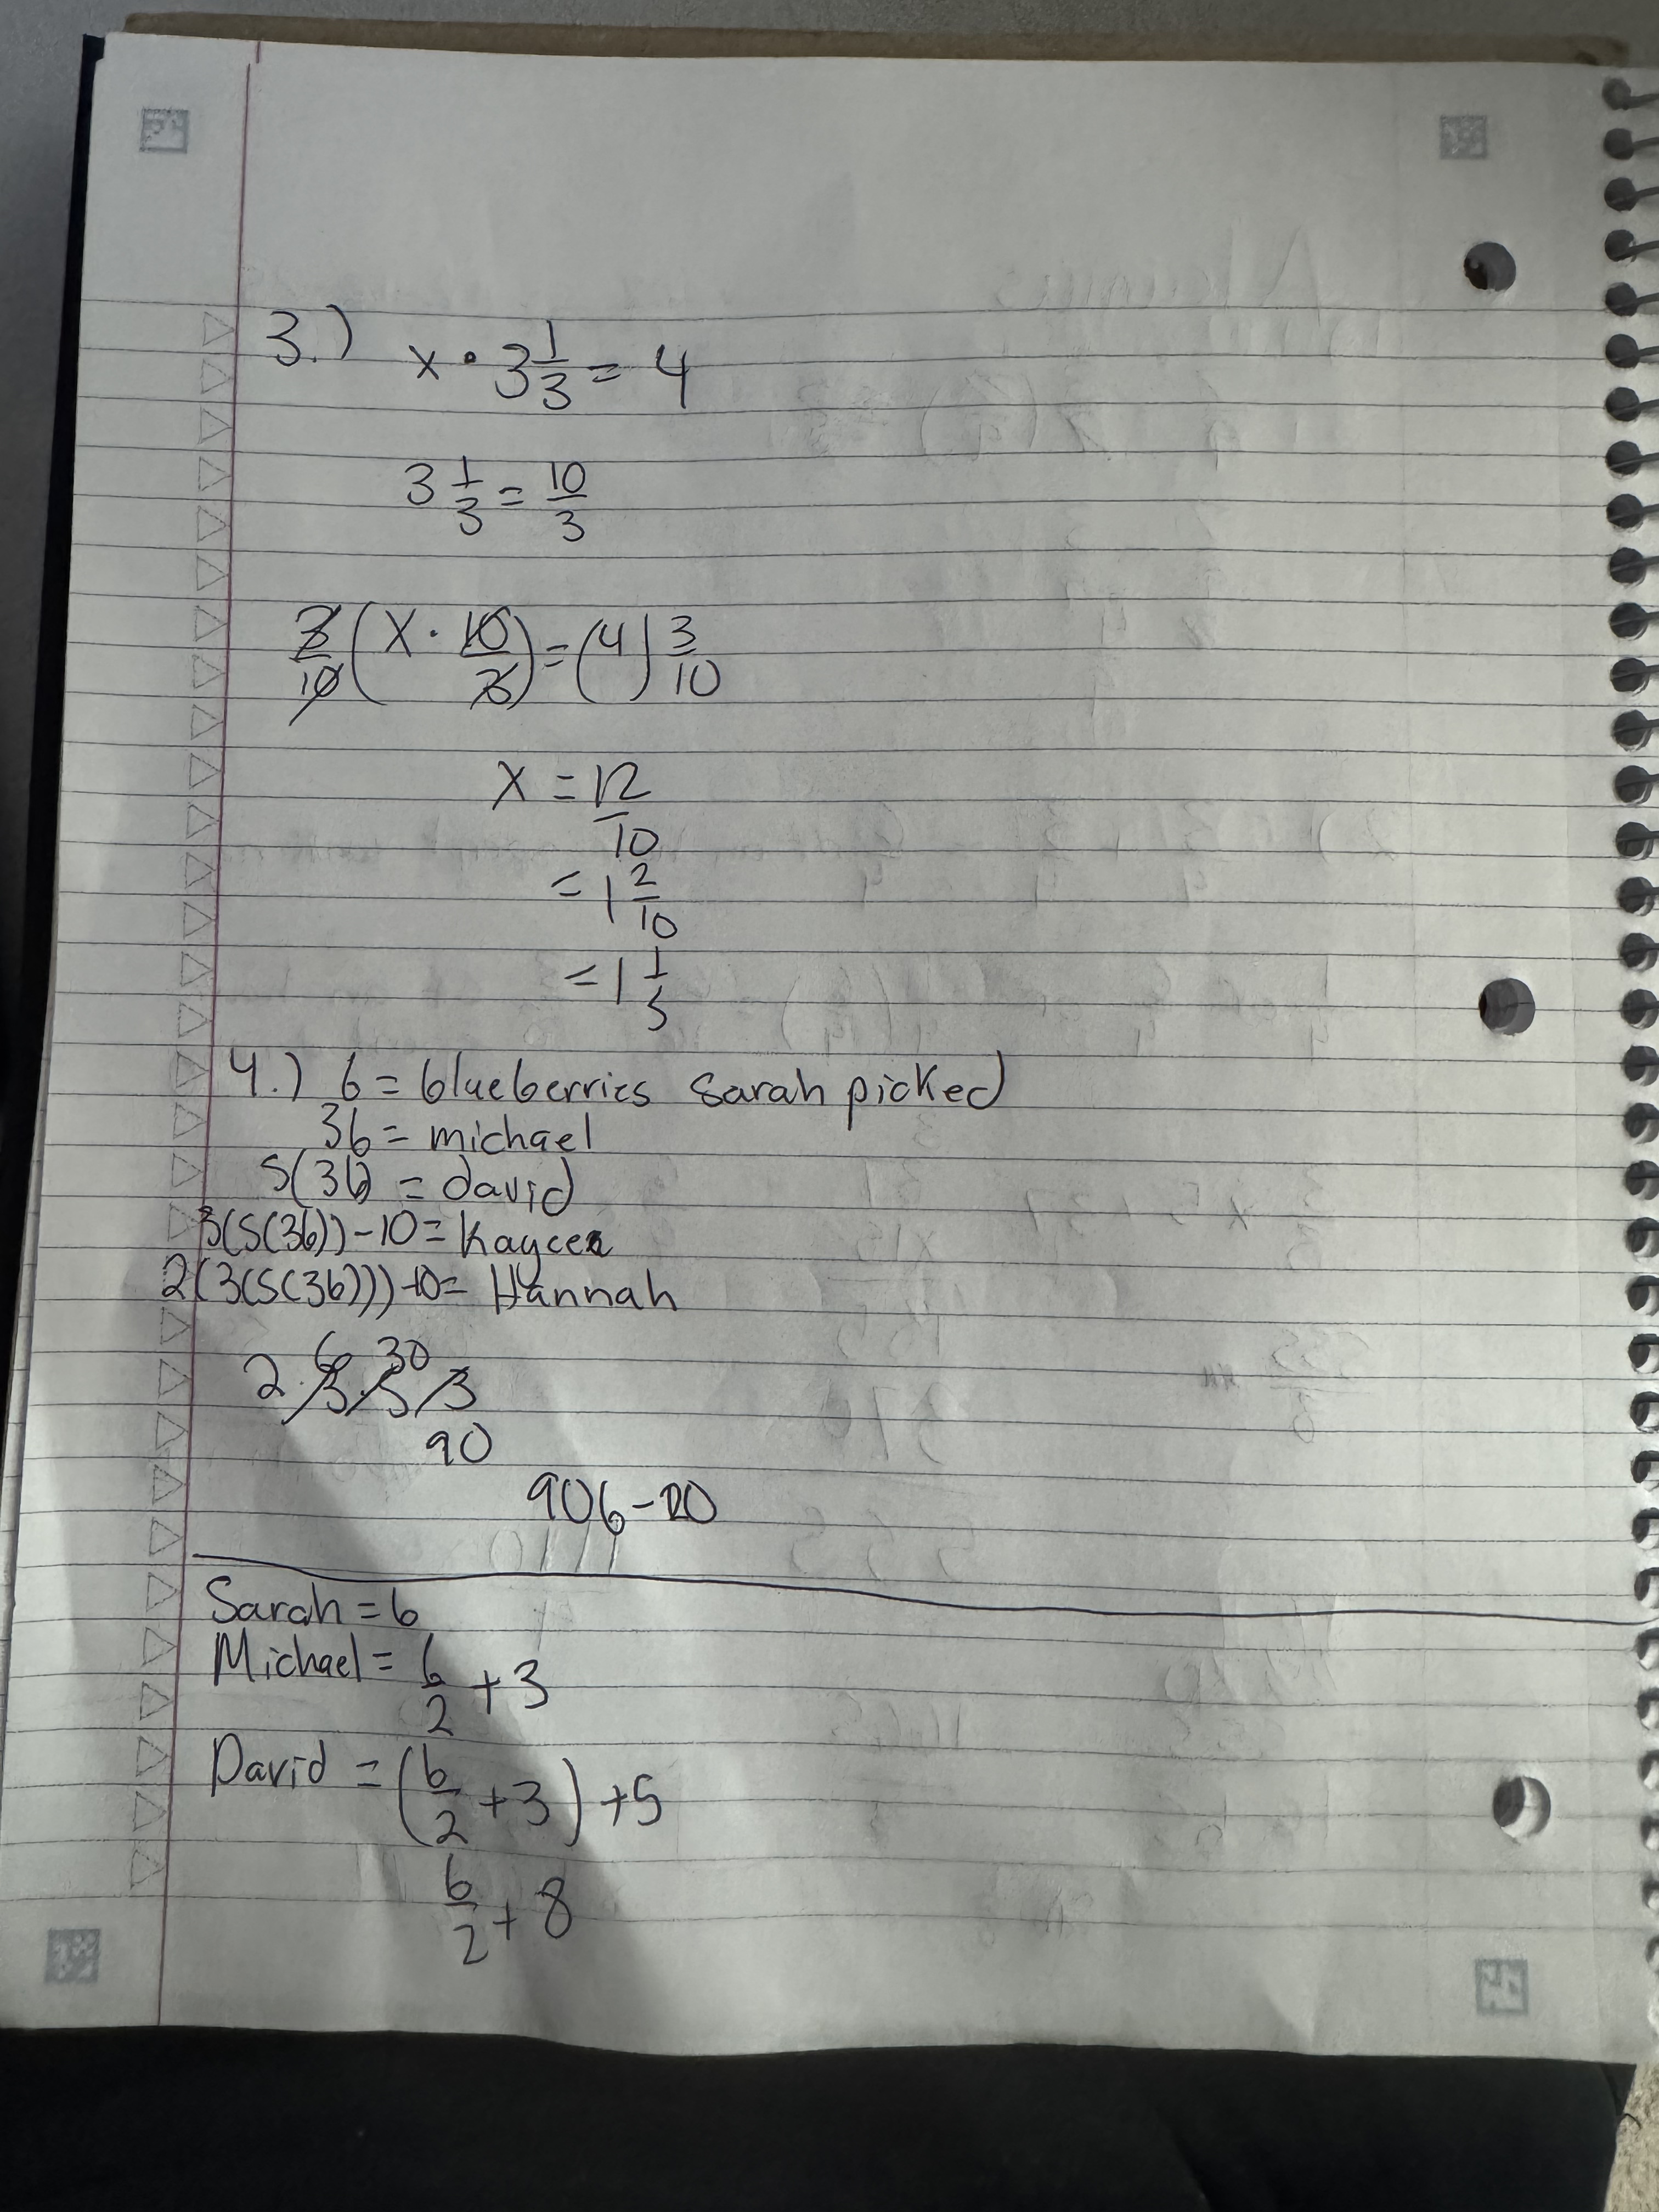 3.) x • 3 1/3 = 4
3 1/3 = 10/3
3/10 (x · 10/3) = (4) 3/10
x = 12/10
= 1 2/10
= 1 1/5
4.) b = blueberries Sarah picked
3b = michael
5(3b) = david
3(5(3b)) - 10 = Kaycee
2(3(5(3b))) - 10 = Hannah
6 30
2 · 3 · 5 · 3
90
90b - 20
Sarah = b
Michael = b/2 + 3
David = (b/2 + 3) + 5
b/2 + 8